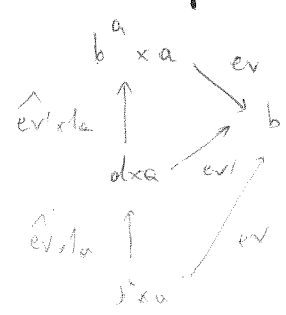 b^a × a
ev
êv' × 1a
b
d×a
ev'
êv × 1a
ev
× a